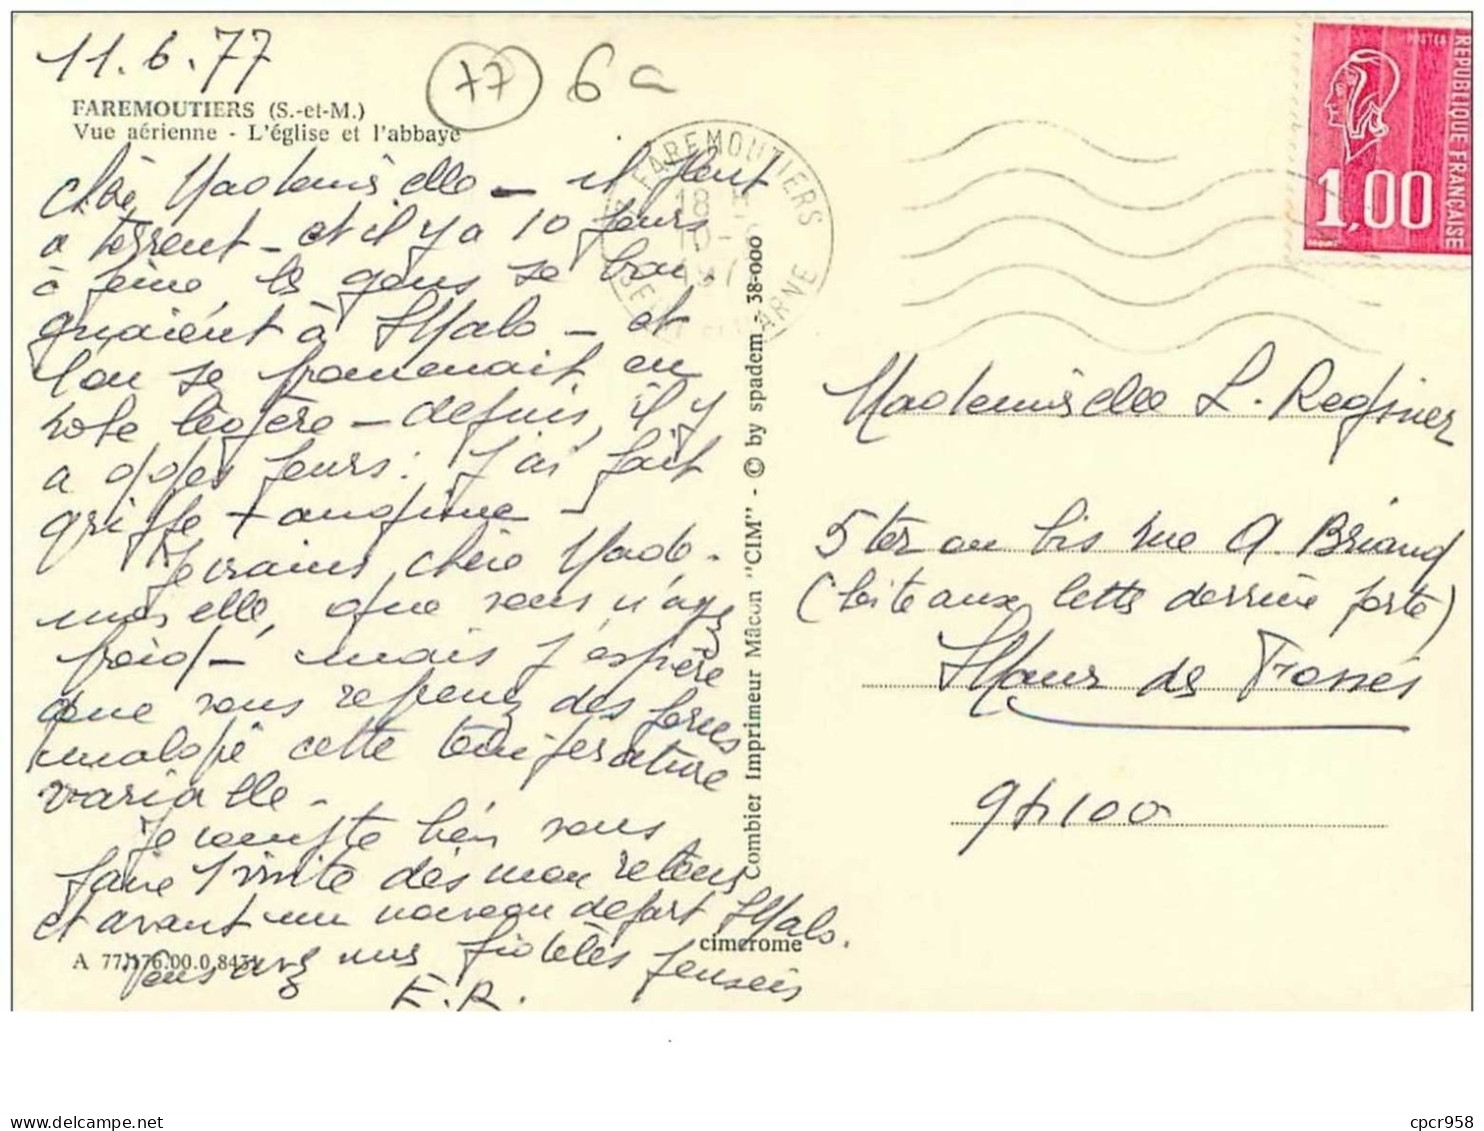 11.6.77
77 6a
FAREMOUTIERS (S.-et-M.)
Vue aérienne - L'église et l'abbaye
FAREMOUTIERS
18 H
10-6
197
SEINE ET MARNE
POSTES
REPUBLIQUE FRANÇAISE
1,00
chère Mademoiselle - il pleut
a torrent - et il y a 10 jours
à peine les gens se bai
gnaient à St Malo - et
l'on se promenait en
robe légère - depuis, il y
a qques jours : j'ai fait
grippe + angine -
Je crains, chère Made-
moiselle, que vous n'ayez
froid - mais j'espère
que vous reprenez des forces
malgré cette température
variable -
Je compte bien vous
faire 1 visite dès mon retour
et avant un nouveau départ St Malo.
Vous avez mes fidèles pensées
E.R.
Combier Imprimeur Mâcon "CIM" - © by spadem - 38-000
cimcrome
A 77.176.00.0.8431
Mademoiselle L. Regnier
5 ter ou bis rue A. Briand
(boîte aux lettres derrière porte)
St Maur des Fossés
94100
cpcr958